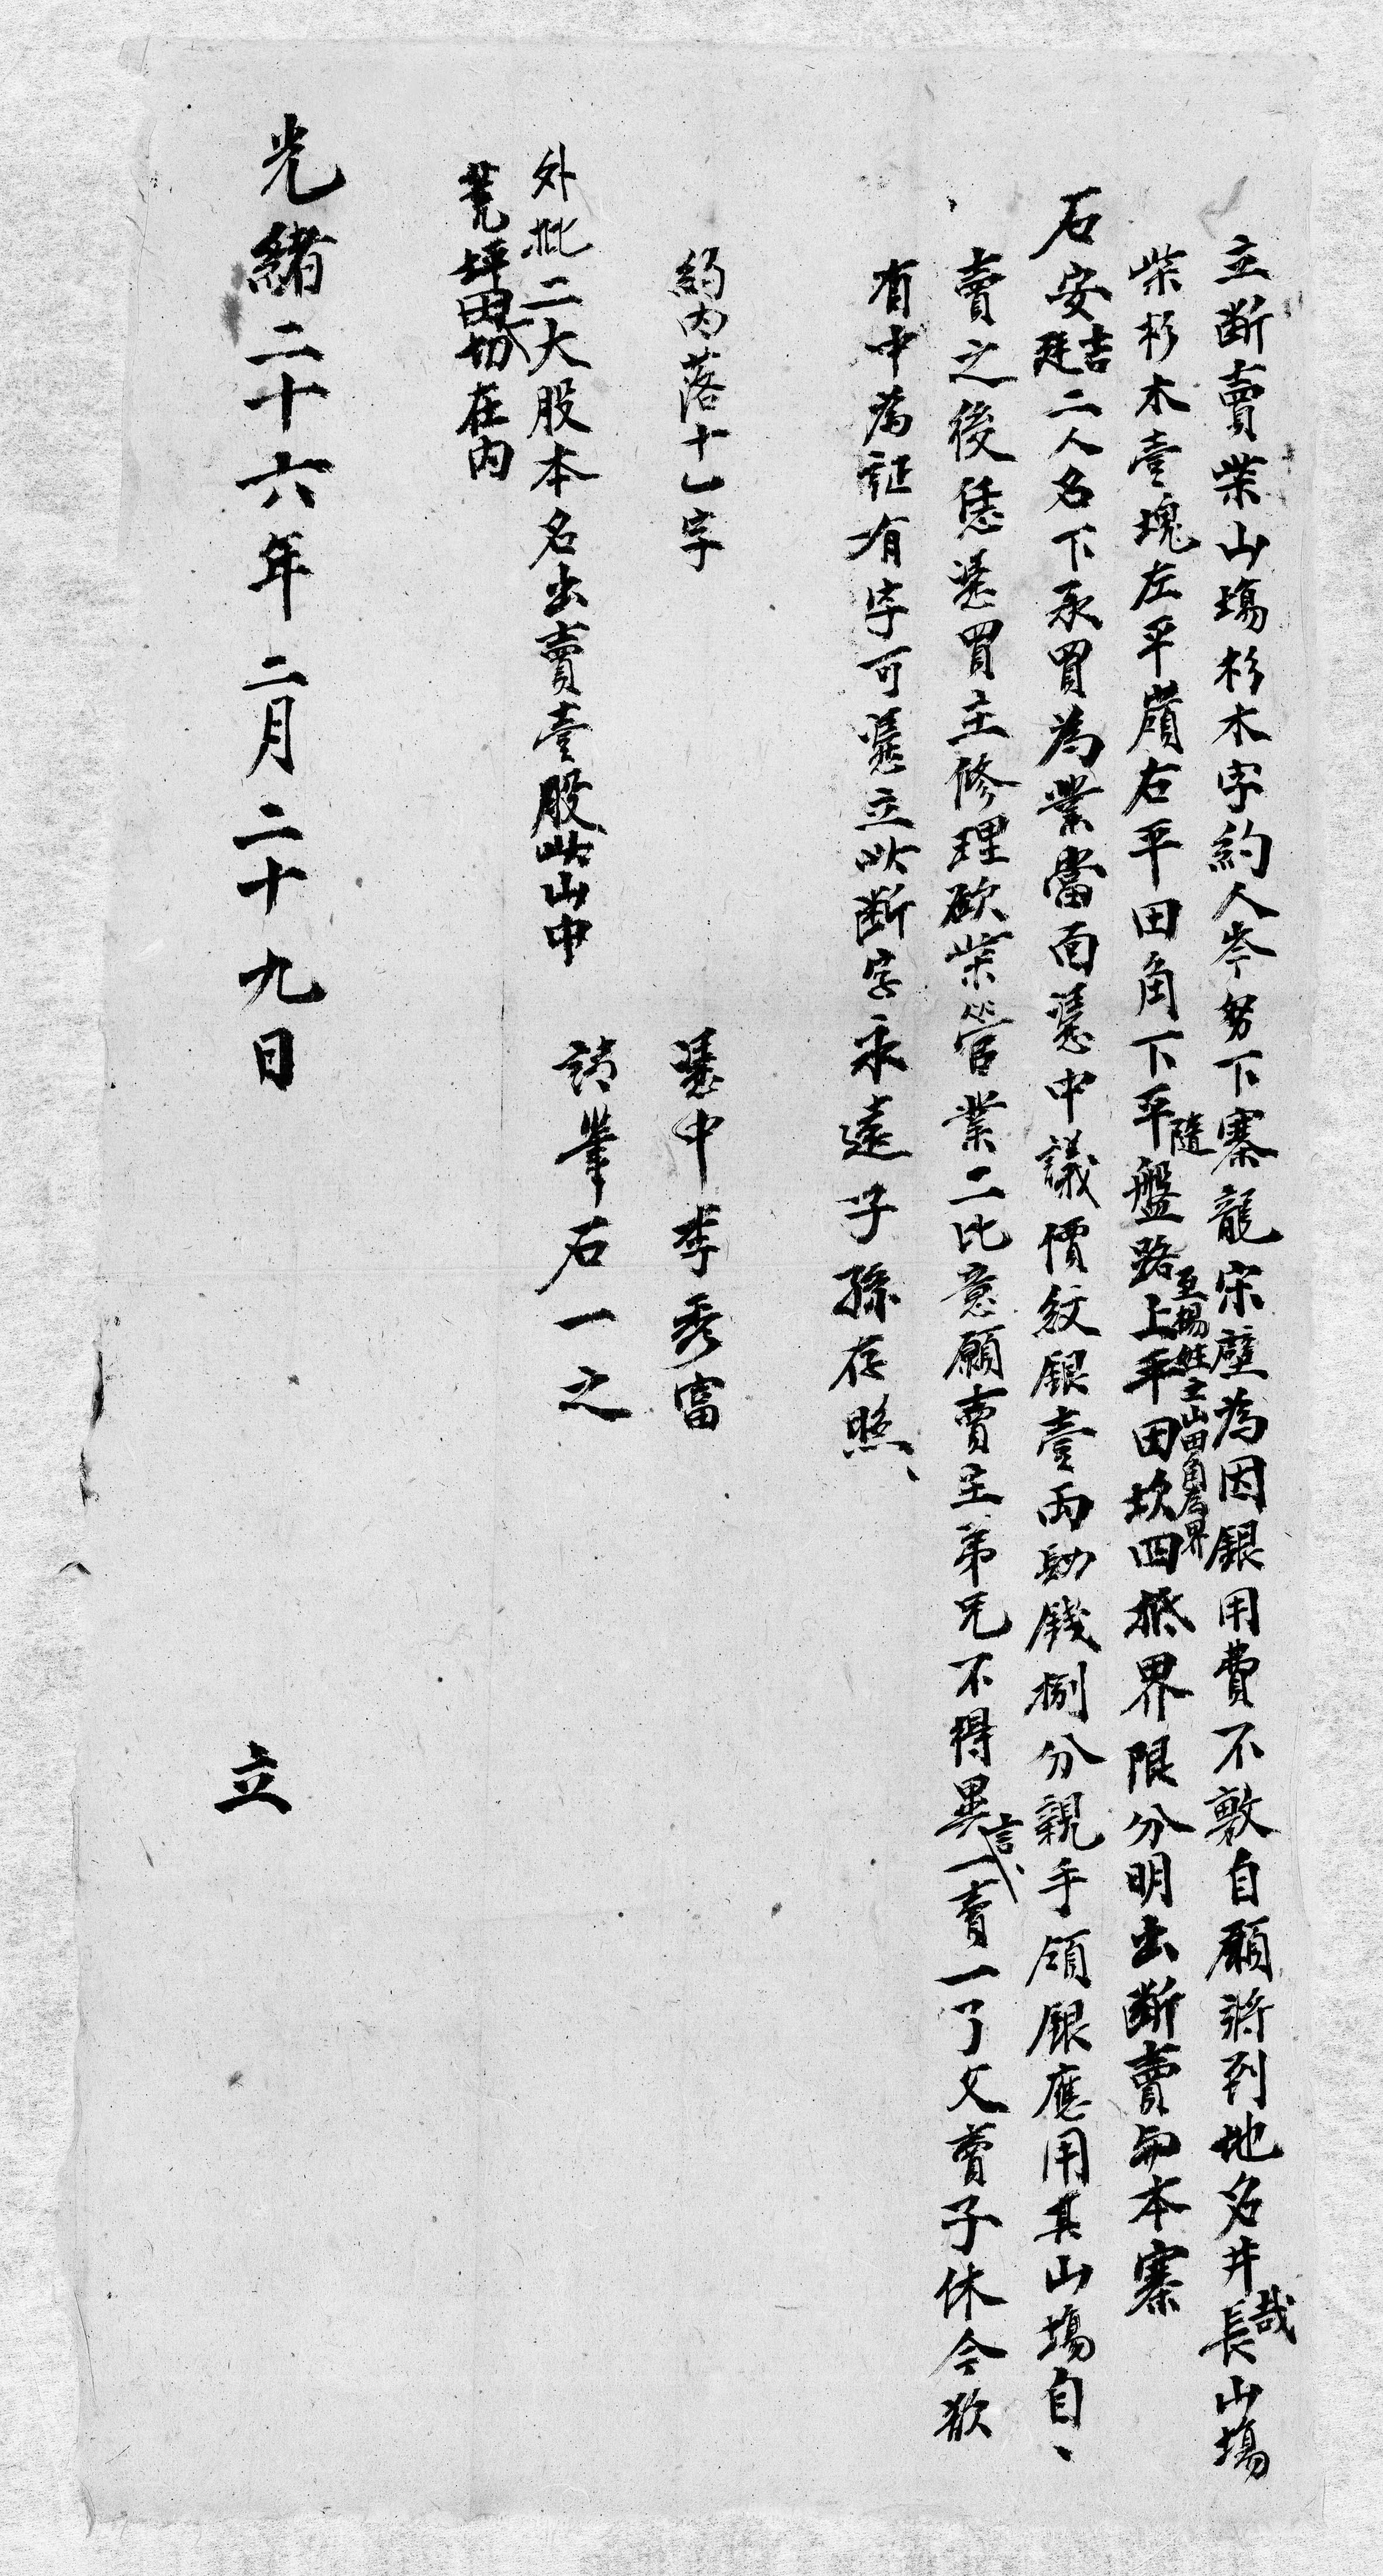 立断賣柴山塲杉木字約人岑努下寨龍宋壁為因銀用費不敷自願將到地名井哉長山塲
柴杉木壹塊左平嶺右平田角下平隨盤路至楊姓之山田角為界上平田坎四抵界限分明出断賣與本寨
石安吉廷二人名下承買為業當面憑中議價紋銀壹両玖錢捌分親手領銀應用其山塲自、
賣之後恁憑買主修理砍柴管業二比意願賣主弟兄不得異言、一賣一了父賣子休今欲
有中為証有字可憑立此断字永遠子孫存照、
約內落十乙字
憑中李秀富
外批二大股本名出賣壹股此山中
荒坪田切在内
請筆石一之
光緒二十六年二月二十九日 立